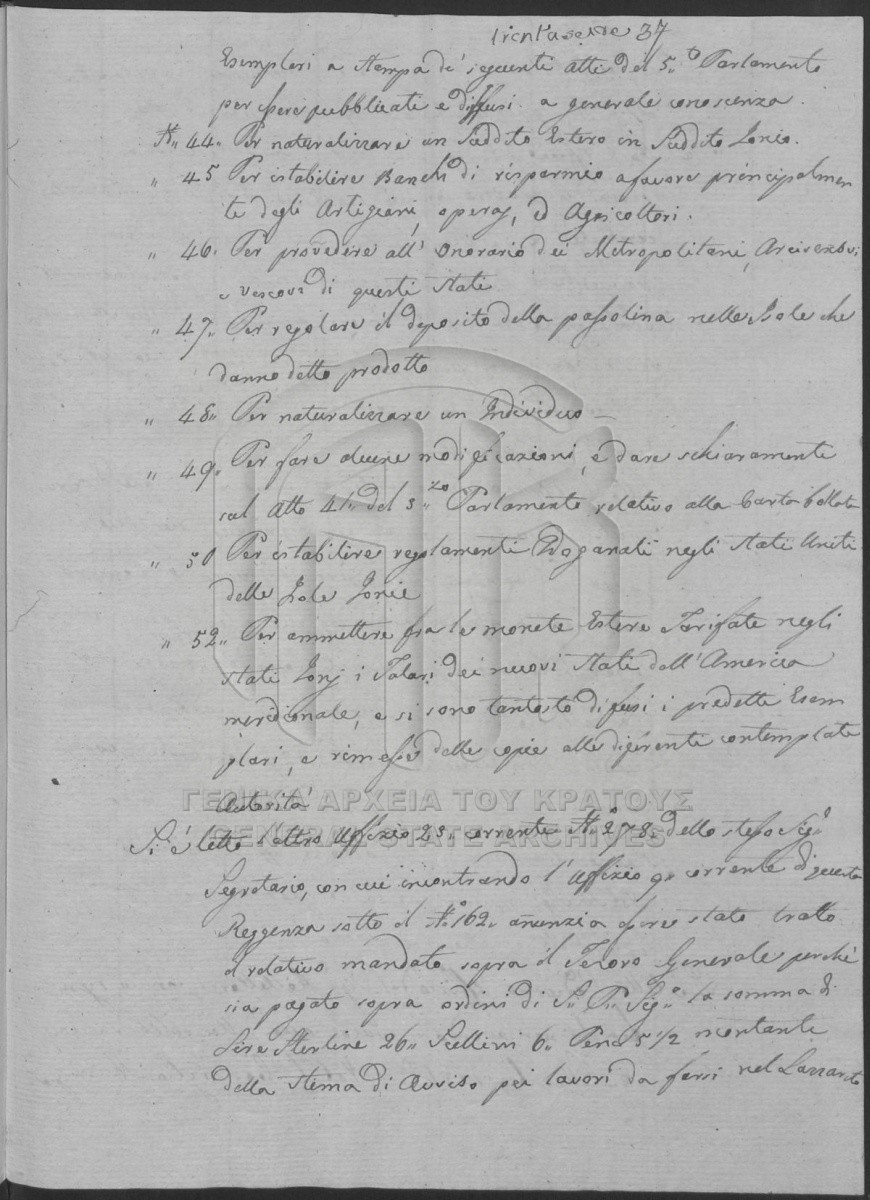 trentasette 37
Esemplari a stampa de' seguenti atti del 5.to Parlamento
per essere pubblicati e diffusi a generale conoscenza.
N.. 44. Per naturalizzare un Suddito Estero in Suddito Jonio.
„ 45 Per istabilire Banchi di risparmio a favore principalmen
te degli Artigiani, operaj, ed Agricoltori.
„ 46. Per provedere all' Onorario dei Metropolitani, Arcivescovi
e vescovi di questi Stati
„ 47. Per regolare il deposito della passolina nelle Isole che
danno detto prodotto
„ 48„ Per naturalizzare un Individuo —
„ 49„ Per fare alcune modificazioni, e dare schiaramente
sul Atto 41„ del 3„zo Parlamento relativo alla Carta bollata
„ 50 Per istabilire regolamenti Doganali negli Stati Uniti
delle Isole Jonie
„ 52„ Per ammettere fra le monete Estere Tarifate negli
Stati Jonj i Talari dei nuovi Stati dell' America
meridionale, e si sono tantosto difusi i predetti Esem
plari, e rimesse delle copie alle diferenti contemplate
autorità
ΓΕΝΙΚΑ ΑΡΧΕΙΑ ΤΟΥ ΚΡΑΤΟΥΣ
GENERAL STATE ARCHIVES
Si è letto l'altro Uffizio 23„ corrente N.o 278„ dello stesso Sig.r
Segretario, con cui incontrando l'Uffizio 9„ corrente di questa
Reggenza sotto il N.o 162„ anunzia essere stato tratto
il relativo mandato sopra il Tesoro Generale perchè
sia pagato sopra ordini di S.. P.. Sig.a la somma di
Lire Sterline 26„ Scellini 6„ Pene 5 1/2 montante
della stima di Avviso pei lavori da farsi nel Lazzaretto